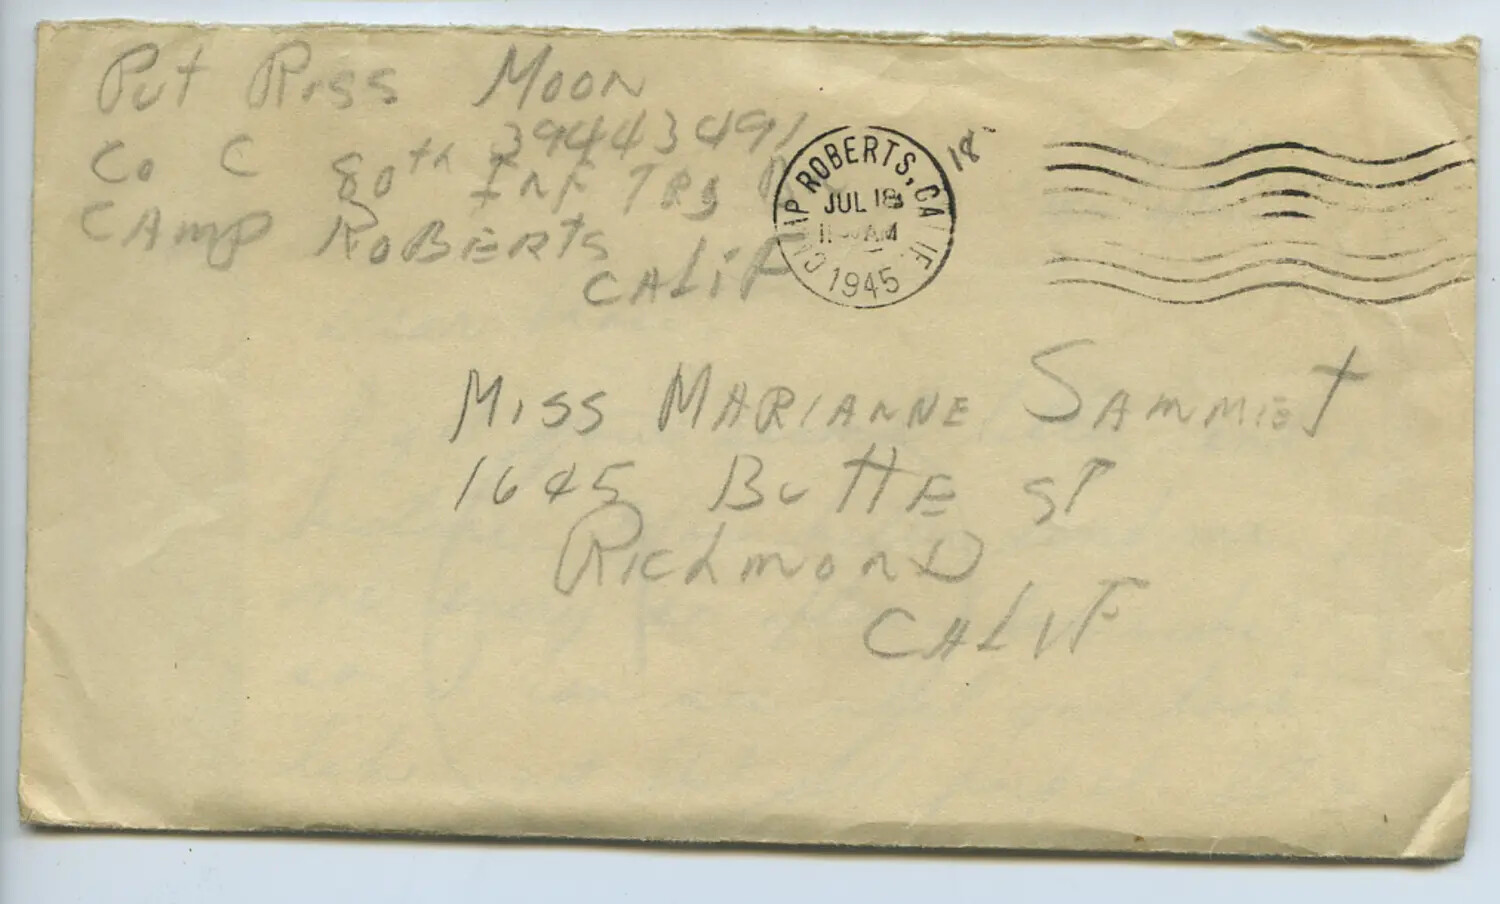 Pvt Ross Moon
39443491
Co C 80th Inf Trg Bn
Camp Roberts
Calif
CAMP ROBERTS, CALIF.
JUL 18
AM
1945
18
Miss Marianne Sammet
1645 Butte St
Richmond
Calif